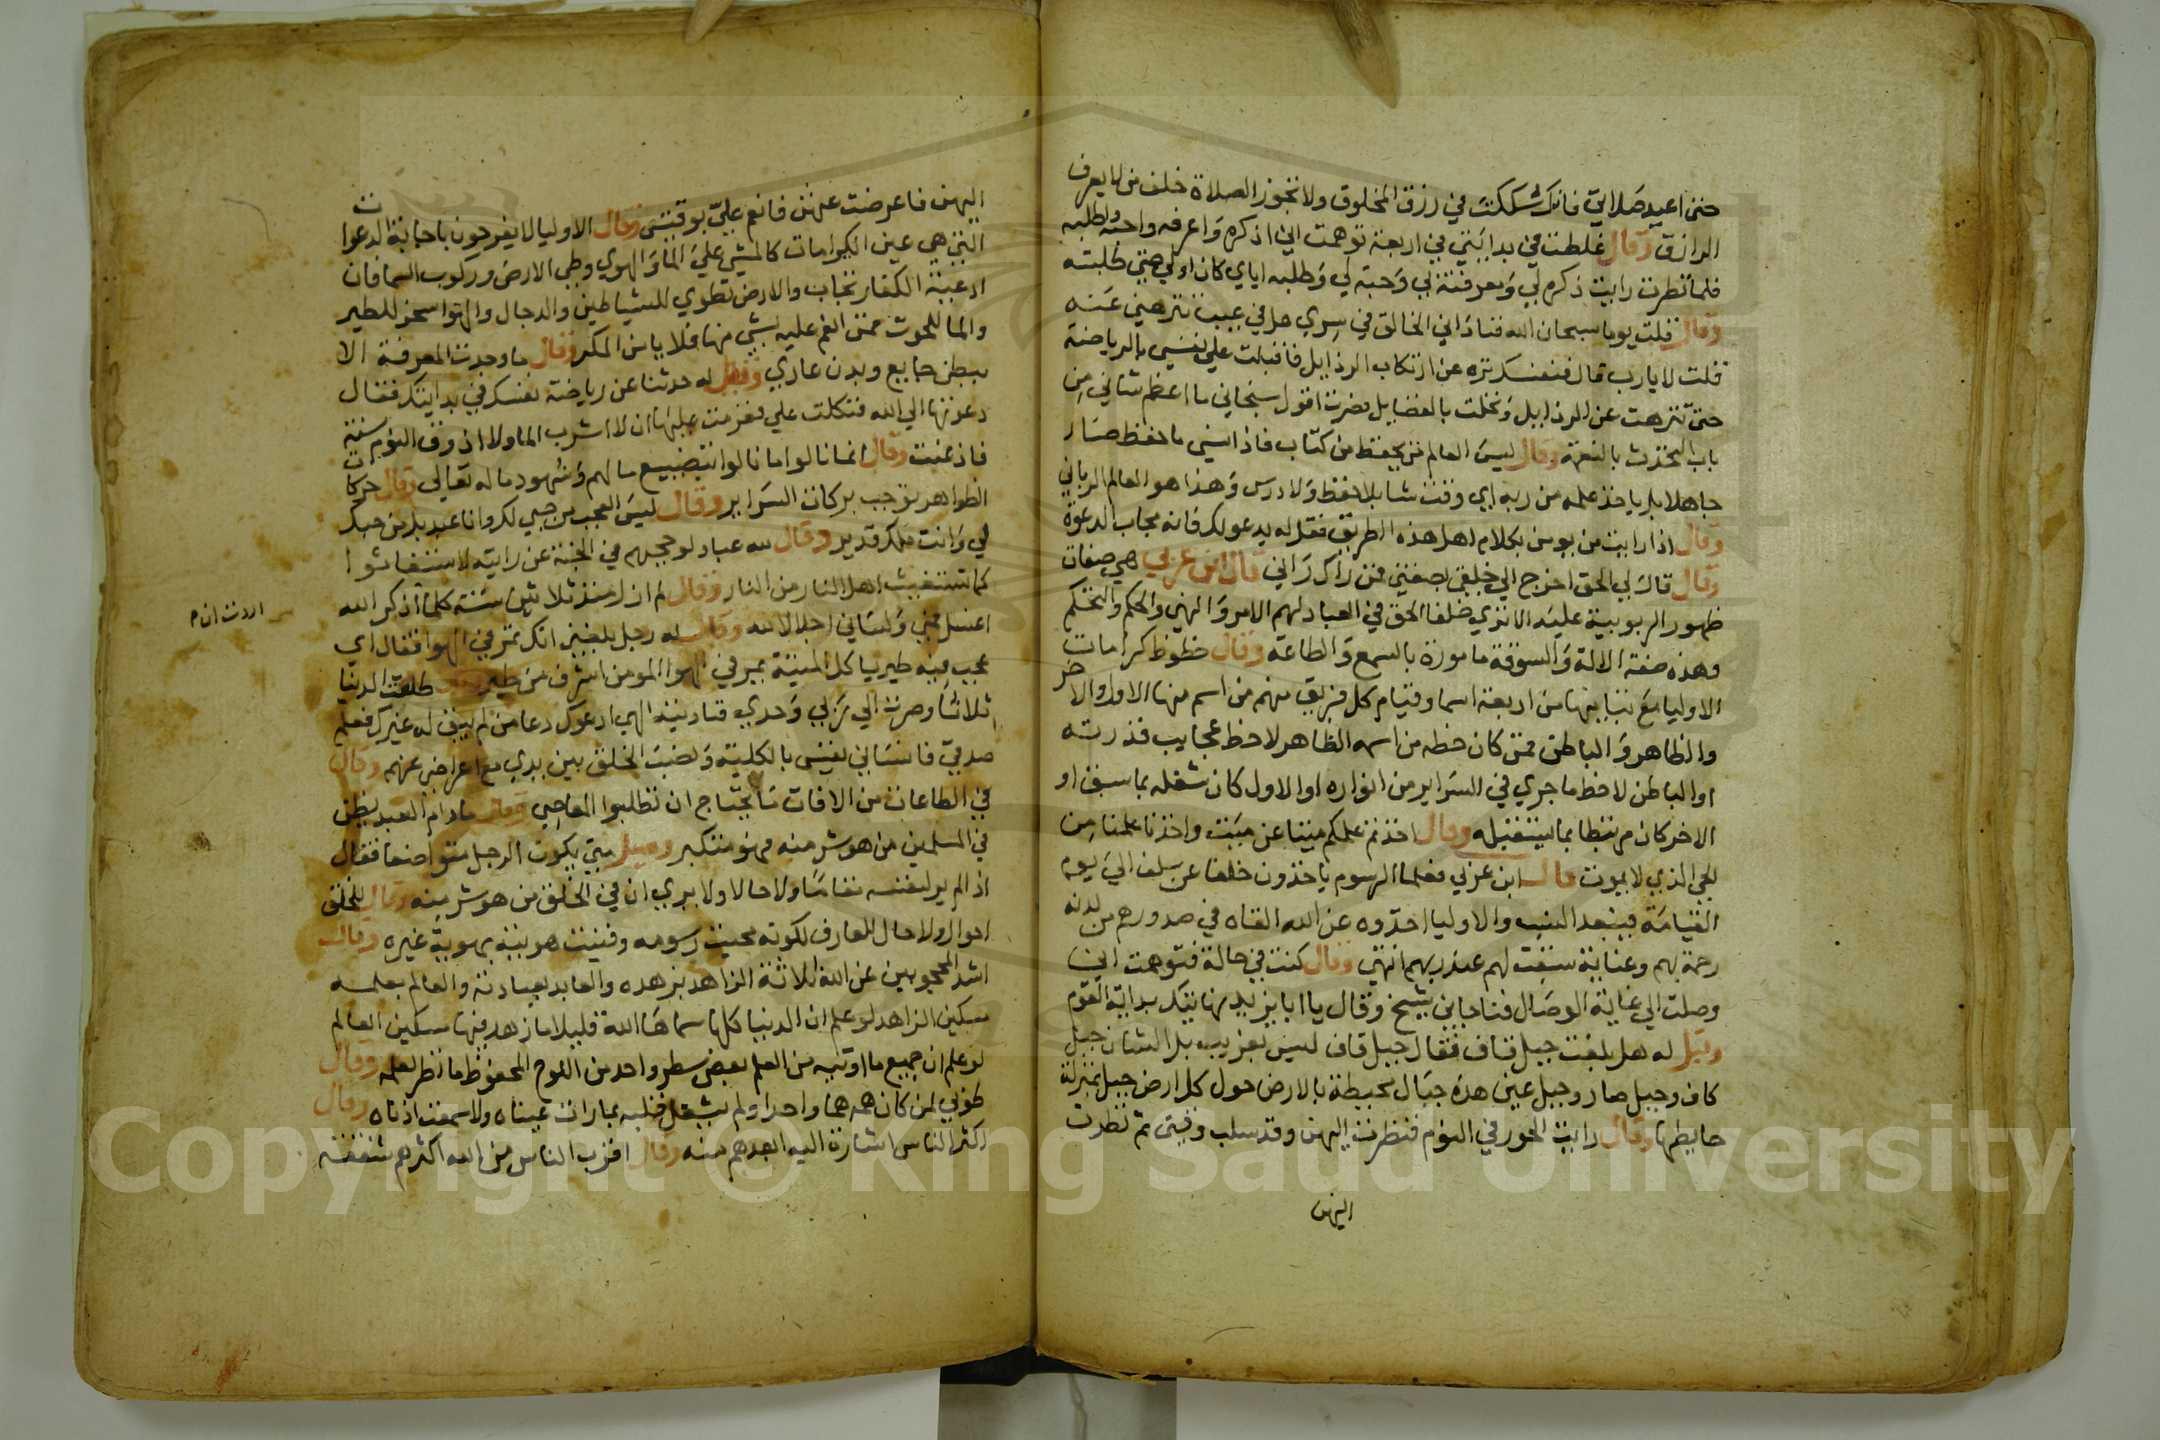 حتى اعيد صلاتي فانك شككت في رزق المخلوق ولا تجوز الصلاة خلف من لا يعرف
الرازق وقال غلطت في بدايتي في اربعة توهمت اني اذكره واعرفه واحبه واطلبه
فلما نظرت رايت ذكره لي ومعرفته بي وحبه لي وطلبه اياي كان اولي حتى طلبته
وقال قلت يوما سبحان الله فناداني الخالق في سري هل في عيب تنزهني عنه
قلت لا يا رب قال فنفسك نزه عن ارتكاب الرذايل فاقبلت علي نفسي بالرياضة
حتى تنزهت عن الرذايل وتحلت بالفضايل فصرت اقول سبحاني ما اعظم شاني من
باب التحدث بالنعمة وقال ليس العالم من يحفظ من كتاب فاذا نسي ما حفظ صار
جاهلا بل ياخذ علمه من ربه اي وقت شا بلا حفظ ولا درس وهذا هو العالم الرباني
وقال اذا رايت من يومن بكلام اهل هذه الطريق فقل له يدعو لك فانه مجاب الدعوة
وقال قال لي الحق اخرج الي خلقي بصفتي فمن راك راني قال ابن عربي هي صفات
ظهور الربوبية عليه الا تري خلفا الحق في العباد لهم الامر والنهي والحكم والتحكم
وهذه صفة الالة والسوقة مامورة بالسمع والطاعة وقال حظوظ كرامات
الاوليا مع تباينها من اربعة اسما وقيام كل فريق منهم من اسم منها الاول والاخر
والظاهر والباطن فمن كان حظه من اسمه الظاهر لاحظ عجايب قدرته
او الباطن لاحظ ما جري في السراير من انواره او الاول كان شغله بما سبق او
الاخر كان مرتبطا بما يستقبله وقال اخذتم علمكم ميتا عن ميت واخذنا علمنا من
الحي الذي لا يموت قال ابن عربي فعلما الرسوم ياخذون خلفا عن سلف الي يوم
القيامة فيبعد النسب والاوليا اخذوه عن الله القاه في صدورهم من لدنه
رحمة بهم وعناية سبقت لهم عند ربهم انتهي وقال كنت في حالة فتوهمت اني
وصلت الي غاية الوصال فناجاني شيخ وقال يا ابا يزيد نهايتك بداية القوم
وقيل له هل بلغت جبل قاف فقال جبل قاف ليس بغريب بل الشان جبل
كاف وجبل صاد وجبل عين هذه جبال محيطة بالارض حول كل ارض جبل بمنزلة
حايطها وقال رايت الحور في النوم فنظرت اليهن وقد سلب وقتي ثم نظرت
اليهن
اليهن فاعرضت عنهن فانعم علي بوقتي وقال الاوليا لا يفرحون باجابة الدعوات
التي هي عين الكرامات كالمشي علي الما والهوي وطي الارض وركوب السما فان
ادعية الكفار تجاب والارض تطوي للشياطين والدجال والهوا مسخر للطير
والما للحوت فمن انعم عليه بشي منها فلا يامن المكر وقال ما وجدت المعرفة الا
ببطن جايع وبدن عاري وقيل له حدثنا عن رياضة نفسك في بدايتك فقال
دعوتها الي الله فنكلت علي فعزمت عليها ان لا اشرب الما ولا اذوق النوم سنة
فاذعنت وقال انما نالوا ما نالوا بتضييع ما لهم وشهود ما له تعالي وقال حركات
الظواهر توجب بركات السراير وقال ليس العجب من حبي لك وانا عبد بل من حبك
لي وانت ملك قدير وقال لله عباد لو حجبهم في الجنة عن رايته لاستغاثوا
كما تستغيث اهل النار من النار وقال لم ازل منذ ثلاثين سنة كلما اذكر الله
اردت ان م
اغسل فمي ولساني اجلالا لله وقال له رجل بلغني انك تمر في الهوا فقال اي
عجب فيه طير ياكل الميتة يمر في الهوا المومن اشرف من طير وقال طلقت الدنيا
ثلاثا وصرت الي ربي وحدي فناديته الهي ادعوك دعا من لم يبق له غيرك فعلم
صدقي فانساني نفسي بالكلية ونصب الخلق بين يدي مع اعراضي عنهم وقال
في الطاعات من الافات ما يحتاج ان تطلبوا المعاصي وقال ما دام العبد يظن
في المسلمين من هو شر منه فهو متكبر وقيل متي يكون الرجل متواضعا فقال
اذا لم ير لنفسه مقاما ولا حالا ولا يري ان في الخلق من هو شر منه وقال للخلق
احوال ولا حال للعارف لكونه محيت رسومه وفنيت هويته بهوية غيره وقال
اشد المحجوبين عن الله ثلاثة الزاهد بزهده والعابد بعبادته والعالم بعلمه
مسكين الزاهد لو علم ان الدنيا كلها سماها الله قليلا ما زهد فيها مسكين العالم
لو علم ان جميع ما اوتيه من العلم بعض سطر واحد من اللوح المحفوظ ما نظر لعلمه وقال
طوبي لمن كان همه هما واحدا ولم يشغل قلبه بما رات عيناه ولا سمعت اذناه وقال
اكثر الناس اشارة اليه ابعدهم منه وقال اقرب الناس من الله اكثرهم شفقة
Copyright © King Saud University